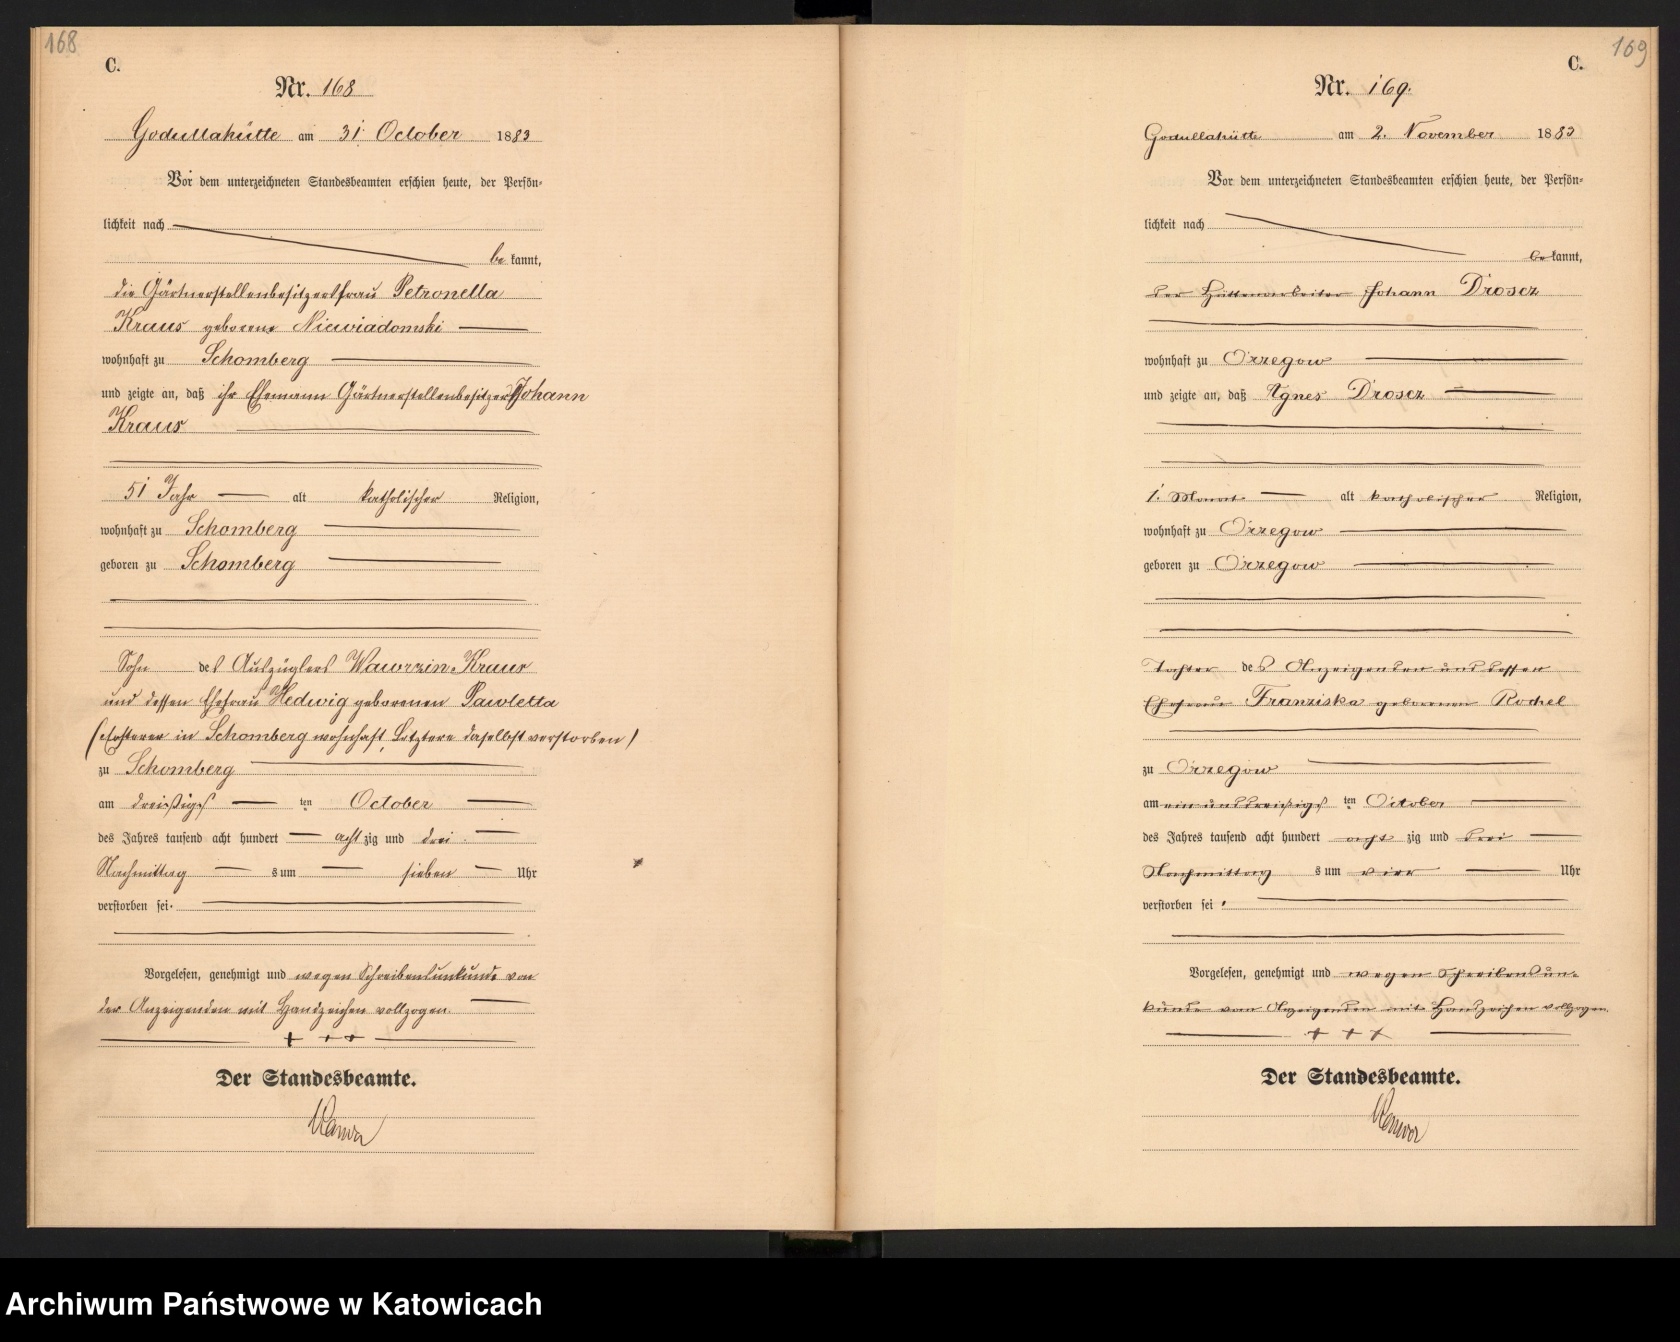 168
C.
Nr. 168
Godullahütte am 31 October 1883
Vor dem unterzeichneten Standesbeamten erschien heute, der Persön-
lichkeit nach
be kannt,
die Gärtnerstellenbesitzersfrau Petronella
Kraus geborene Niewiadomski
wohnhaft zu Schomberg
und zeigte an, daß ihr Ehemann Gärtnerstellenbesitzer Johann
Kraus
51 Jahr alt katholischer Religion,
wohnhaft zu Schomberg
geboren zu Schomberg
Sohn des Auszüglers Wawrzin Kraus
und dessen Ehefrau Hedwig geborenen Pawletta
(Ersterer in Schomberg wohnhaft, Letztere daselbst verstorben)
zu Schomberg
am dreißigs ten October
des Jahres tausend acht hundert acht zig und drei
Nachmittag s um sieben Uhr
verstorben sei.
Vorgelesen, genehmigt und wegen Schreibensunkunde von
der Anzeigenden mit Handzeichen vollzogen.
+ + +
Der Standesbeamte.
169
C.
Nr. 169.
Godullahütte am 2. November 1883
Vor dem unterzeichneten Standesbeamten erschien heute, der Persön-
lichkeit nach
be kannt,
der Hüttenarbeiter Johann Droscz
wohnhaft zu Orzegow
und zeigte an, daß Agnes Droscz
1. Monat alt katholischer Religion,
wohnhaft zu Orzegow
geboren zu Orzegow
Tochter des Anzeigenden und dessen
Ehefrau Franziska geborenen Rochel
zu Orzegow
am ein und dreißigs ten October
des Jahres tausend acht hundert acht zig und drei
Nachmittag s um vier Uhr
verstorben sei.
Vorgelesen, genehmigt und wegen Schreibensun-
kunde vom Anzeigenden mit Handzeichen vollzogen.
+ + +
Der Standesbeamte.
Archiwum Państwowe w Katowicach